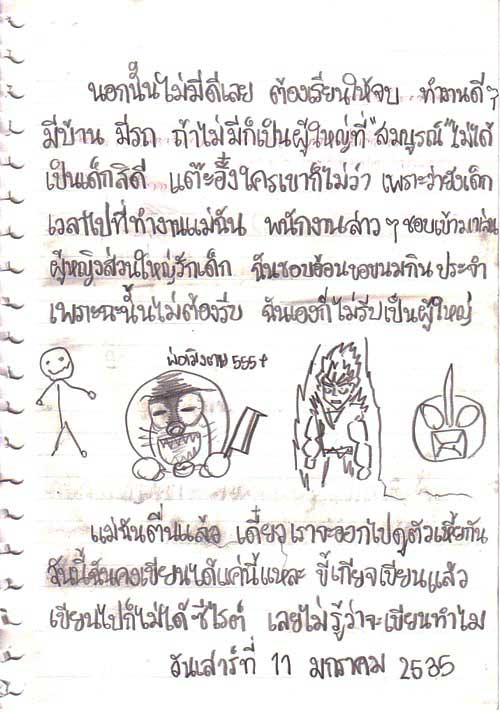 นอกนั้นไม่มีดีเลย ต้องเรียนให้จบ ทำงานดีๆ
มีบ้าน มีรถ ถ้าไม่มีก็เป็นผู้ใหญ่ที่ "สมบูรณ์" ไม่ได้
เป็นเด็กสิดี แต๊ะอั๋งใครเขาก็ไม่ว่า เพราะว่ายังเด็ก
เวลาไปที่ทำงานแม่ฉัน พนักงานสาวๆ ชอบเข้ามาเล่น
ผู้หญิงส่วนใหญ่รักเด็ก ฉันชอบอ้อนขอขนมกิน ประจำ
เพราะฉะนั้นไม่ต้องรีบ ฉันเองก็ไม่รีบเป็นผู้ใหญ่
พ่อเมิงตาย 555+
แม่ฉันตื่นแล้ว เดี๋ยวเราจะออกไปดูตัวเหี้ยกัน
วันนี้ฉันคงเขียนได้แค่นี้แหละ ขี้เกียจเขียนแล้ว
เขียนไปก็ไม่ได้ซีไรต์ เลยไม่รู้ว่าจะเขียนทำไม
วันเสาร์ที่ 11 มกราคม 2535